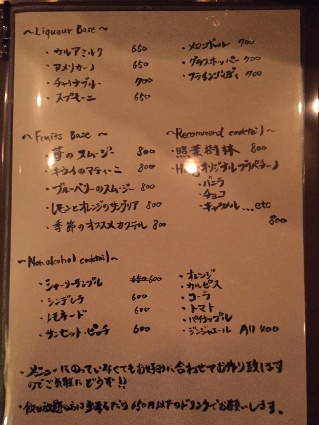 ~Liqueur Base~
・カルアミルク 650
・アメリカーノ 650
・チャイナブルー 700
・スプモーニ 650
・メロンボール 700
・グラスホッパー 700
700
~Fruits Base~
・苺のスムージー 800
・キウイのマティーニ 800
・ブルーベリーのスムージー 800
・レモンとオレンジの生サングリア 800
・季節のオススメカクテル 800
~Recommend cocktail~
・照葉樹林 800
オリジナル
・バニラ
・チョコ
・キャラメル...etc
800
~Nonalcohol cocktail~
・シャーリーテンプル 600
・シンデレラ 600
・レモネード 600
・サンセットピーチ 600
・オレンジ
・カルピス
・コーラ
・トマト
・パイナップル
・ジンジャエール All 400
・メニューにのっていなくてもお好みに合わせてお作り致します
のでご気軽にどうぞ!!
・飲み放題 650円以下のドリンクでお願いします。